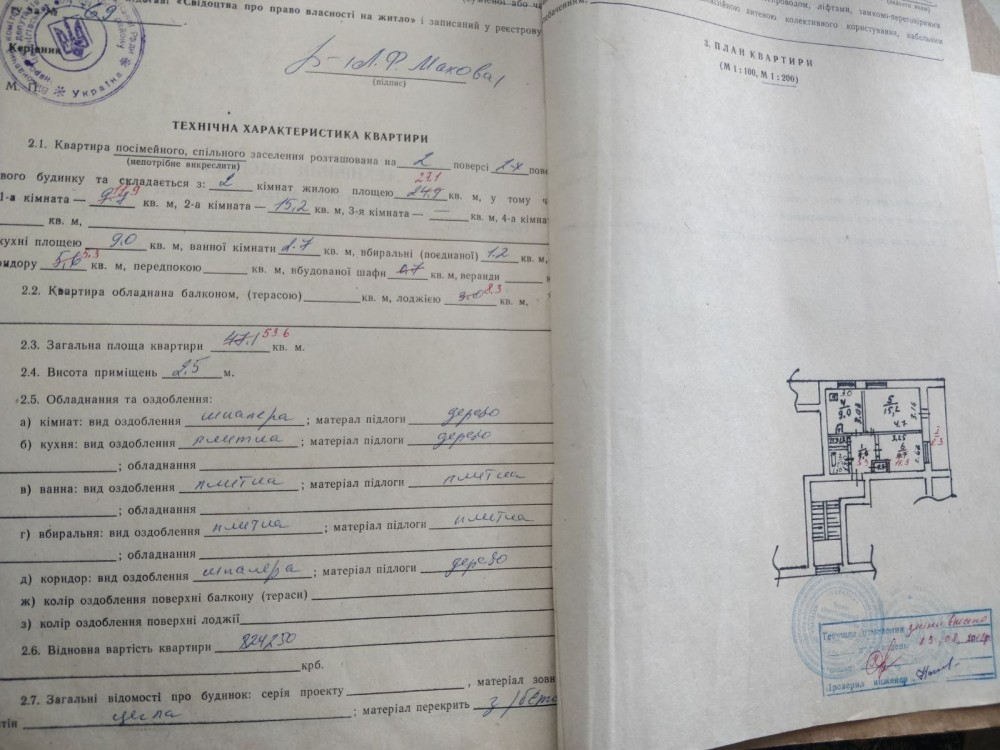 «Свідоцтва про право власності на житло» і записаний у реєстрову
Керівник
Л.Ф. Махова
(підпис)
М. П.
Україна
ТЕХНІЧНА ХАРАКТЕРИСТИКА КВАРТИРИ
2.1. Квартира посімейного, спільного заселення розташована на 2 поверсі 2-х пове
(непотрібне викреслити)
вого будинку та складається з: 2 кімнат жилою площею 24,9 27,1 кв. м, у тому ч
1-а кімната — 9,7 11,9 кв. м, 2-а кімната — 15,2 кв. м, 3-я кімната — — кв. м, 4-а кімнат
кв. м,
кухні площею 9,0 кв. м, ванної кімнати 2.7 кв. м, вбиральні (поєднаної) 1.2 кв. м,
ридору 5,6 5,3 кв. м, передпокою кв. м, вбудованої шафи 0,7 кв. м, веранди
2.2. Квартира обладнана балконом, (терасою) кв. м, лоджією 3.0 8,3 кв. м,
2.3. Загальна площа квартири 47.1 53 6 кв. м.
2.4. Висота приміщень 2,5 м.
2.5. Обладнання та оздоблення:
а) кімнат: вид оздоблення шпалера ; матерал підлоги дерево
б) кухня: вид оздоблення плитка ; матеріал підлоги дерево
; обладнання
в) ванна: вид оздоблення плитка ; матеріал підлоги плитка
; обладнання
г) вбиральня: вид оздоблення плитка ; матеріал підлоги плитка
; обладнання
д) коридор: вид оздоблення шпалера ; матеріал підлоги дерево
ж) колір оздоблення поверхні балкону (тераси)
з) колір оздоблення поверхні лоджії
2.6. Відновна вартість квартири 824250
крб.
2.7. Загальні відомості про будинок: серія проекту , матеріал зовн
тін цегла ; матеріал перекрить з/бето
проводом, ліфтами, замково-переговорним
антеною колективного користування, кабельни
баченням.
3. ПЛАН КВАРТИРИ
(М 1 : 100, М 1 : 200)
3.0
4
9,0
5
15,2
4.7
3.25
5.3
11,9
8.3
зміни внесено
Перевірив инженер